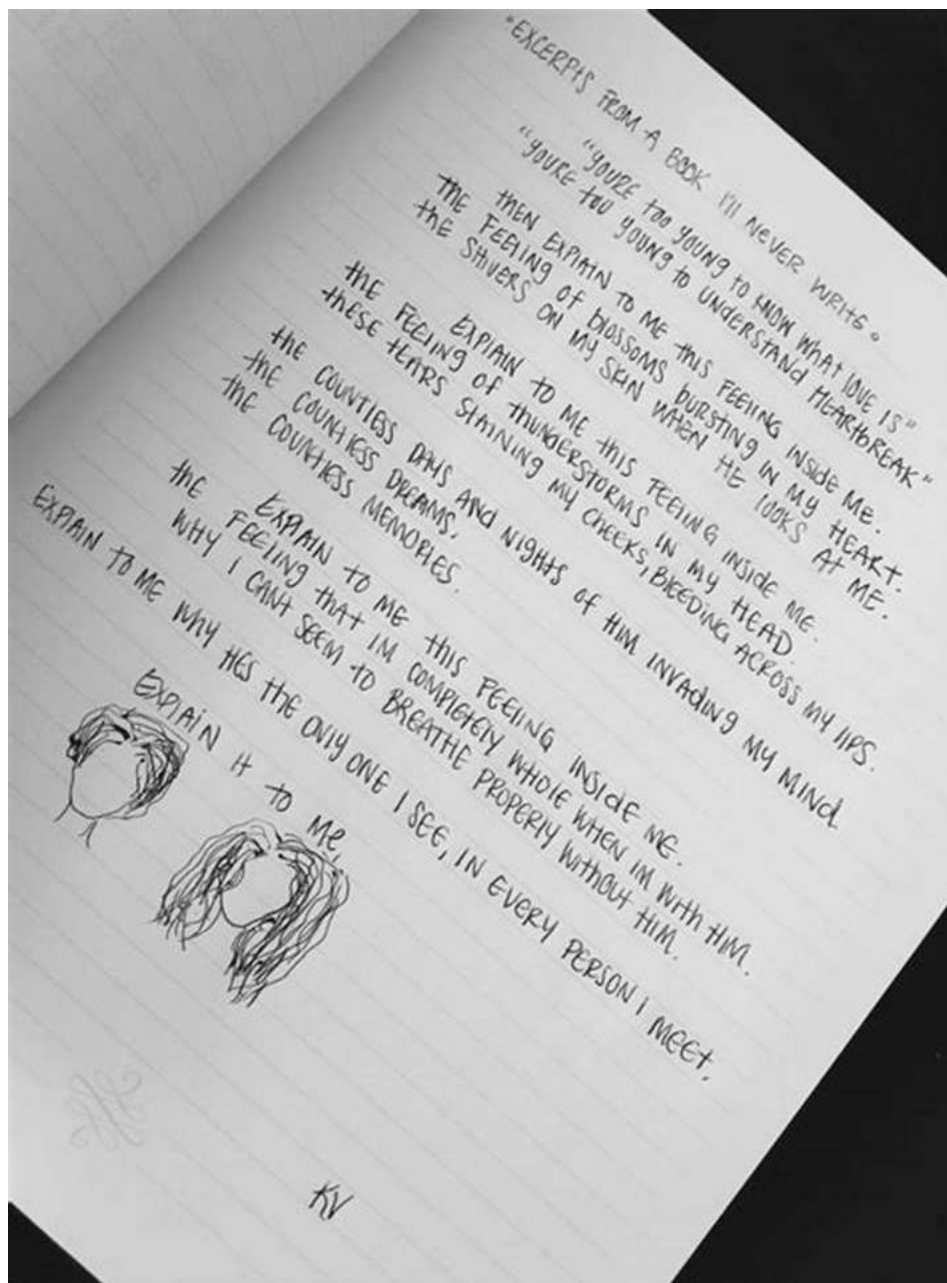 "EXCERPTS FROM A BOOK I'll NEVER WRITE.
"YOURE TOO YOUNG TO KNOW WHAT LOVE IS"
"YOURE TOO YOUNG TO UNDERSTAND HEARTBREAK"
THEN EXPLAIN TO ME THIS FEELING INSIDE ME.
THE FEELING OF BLOSSOMS BURSTING IN MY HEART.
THE SHIVERS ON MY SKIN WHEN HE LOOKS AT ME.
EXPLAIN TO ME THIS FEELING INSIDE ME.
THE FEELING OF THUNDERSTORMS IN MY HEAD.
THESE TEARS STAINING MY CHEEKS, BLEEDING ACROSS MY LIPS.
THE COUNTLESS DAYS AND NIGHTS OF HIM INVADING MY MIND.
THE COUNTLESS DREAMS.
THE COUNTLESS MEMORIES.
EXPLAIN TO ME THIS FEELING INSIDE ME.
THE FEELING THAT IM COMPLETELY WHOLE WHEN IM WITH HIM.
WHY I CANT SEEM TO BREATHE PROPERLY WITHOUT HIM.
EXPLAIN TO ME WHY HES THE ONLY ONE I SEE, IN EVERY PERSON I MEET.
EXPLAIN IT TO ME.
KV